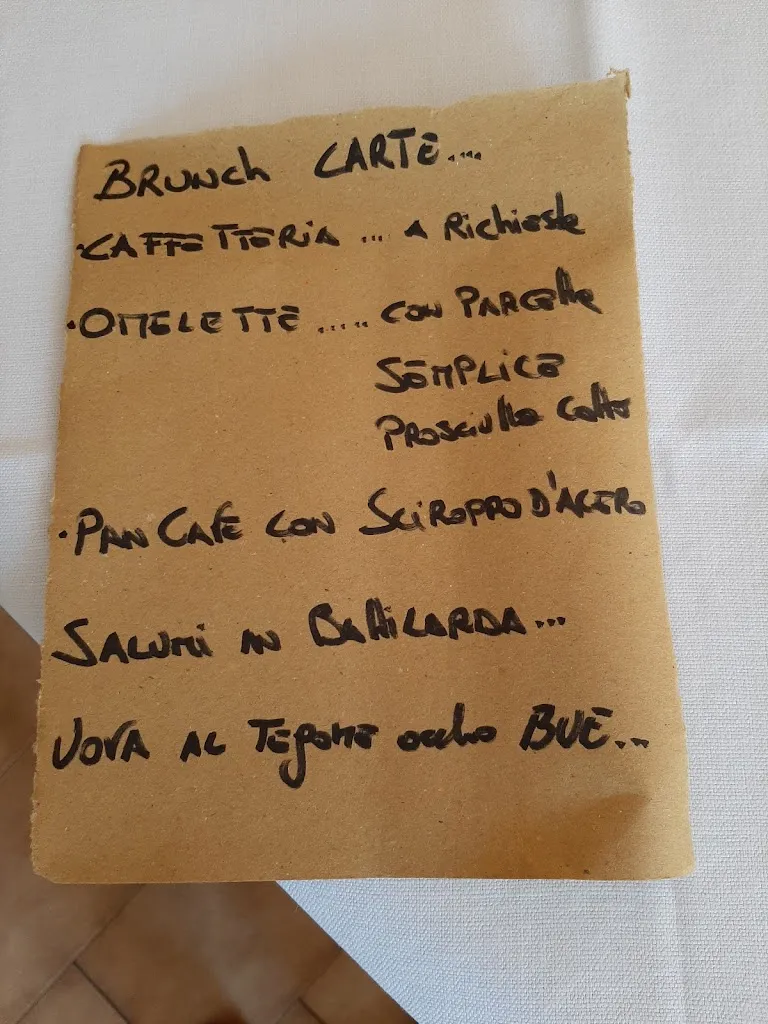 BRUNch CARTE....
·CAFFETTERIA ... A Richieste
·OMELETTE ..... CON PANCETTA
SEMPLICE
PROSCIUTTO COTTO
·PAN CAFE CON SCIROPPO D'ACERO
SALUMI IN BATTILARDA...
UOVA AL TEGAME occhio BUE...